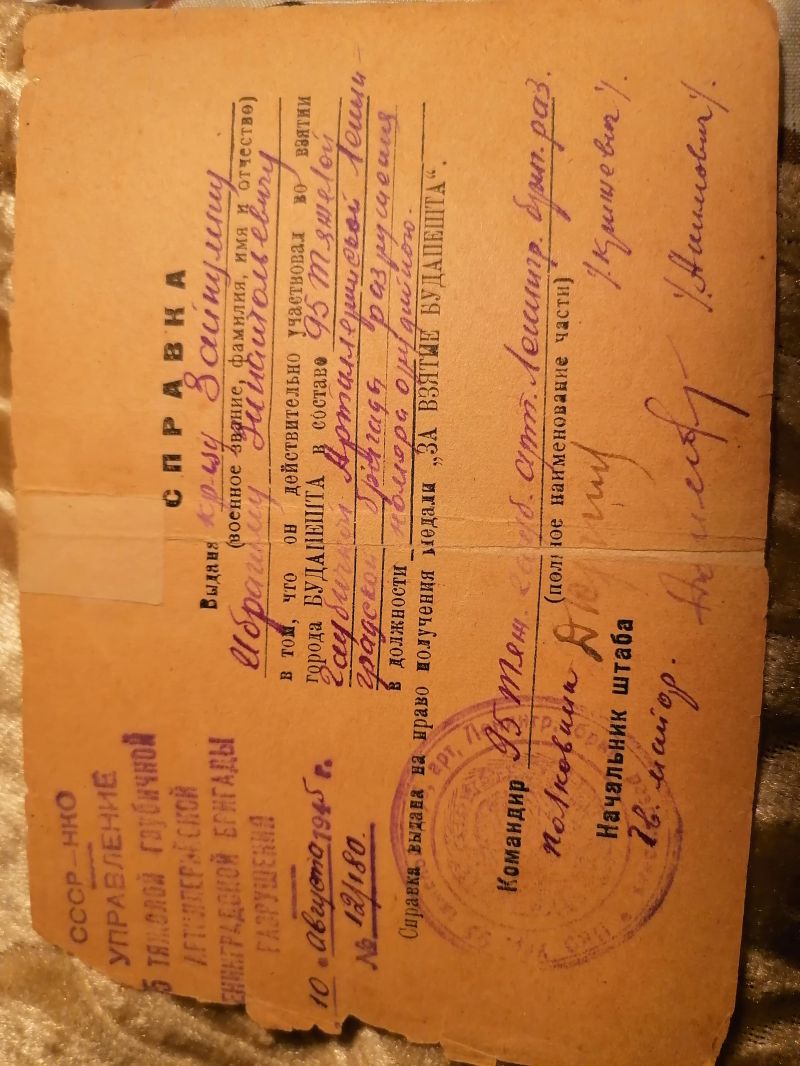 СССР-НКО
УПРАВЛЕНИЕ
5 ТЯЖОЛОЙ ГАУБИЧНОЙ
АРТИЛЕРИЙСКОЙ
ЕНИНГРАДСКОЙ БРИГАДЫ
РАЗРУШЕНИЯ
10 " Августа 1945 г.
№ 12/180.
СПРАВКА
Выдана
(военное звание, фамилия, имя и отчество)
в том, что он действительно участвовал во взятии
города БУДАПЕШТА в составе 95 тяжелой
гаубичной Артиллерийской Ленин-
градской бригады разрушения
в должности номера орудийного.
Справка выдана на право получения медали „ЗА ВЗЯТИЕ БУДАПЕШТА".
Командир 95 тяж. гауб. арт. Ленингр. бриг. раз.
(полное наименование части)
полковник
Начальник штаба
Гв. майор.